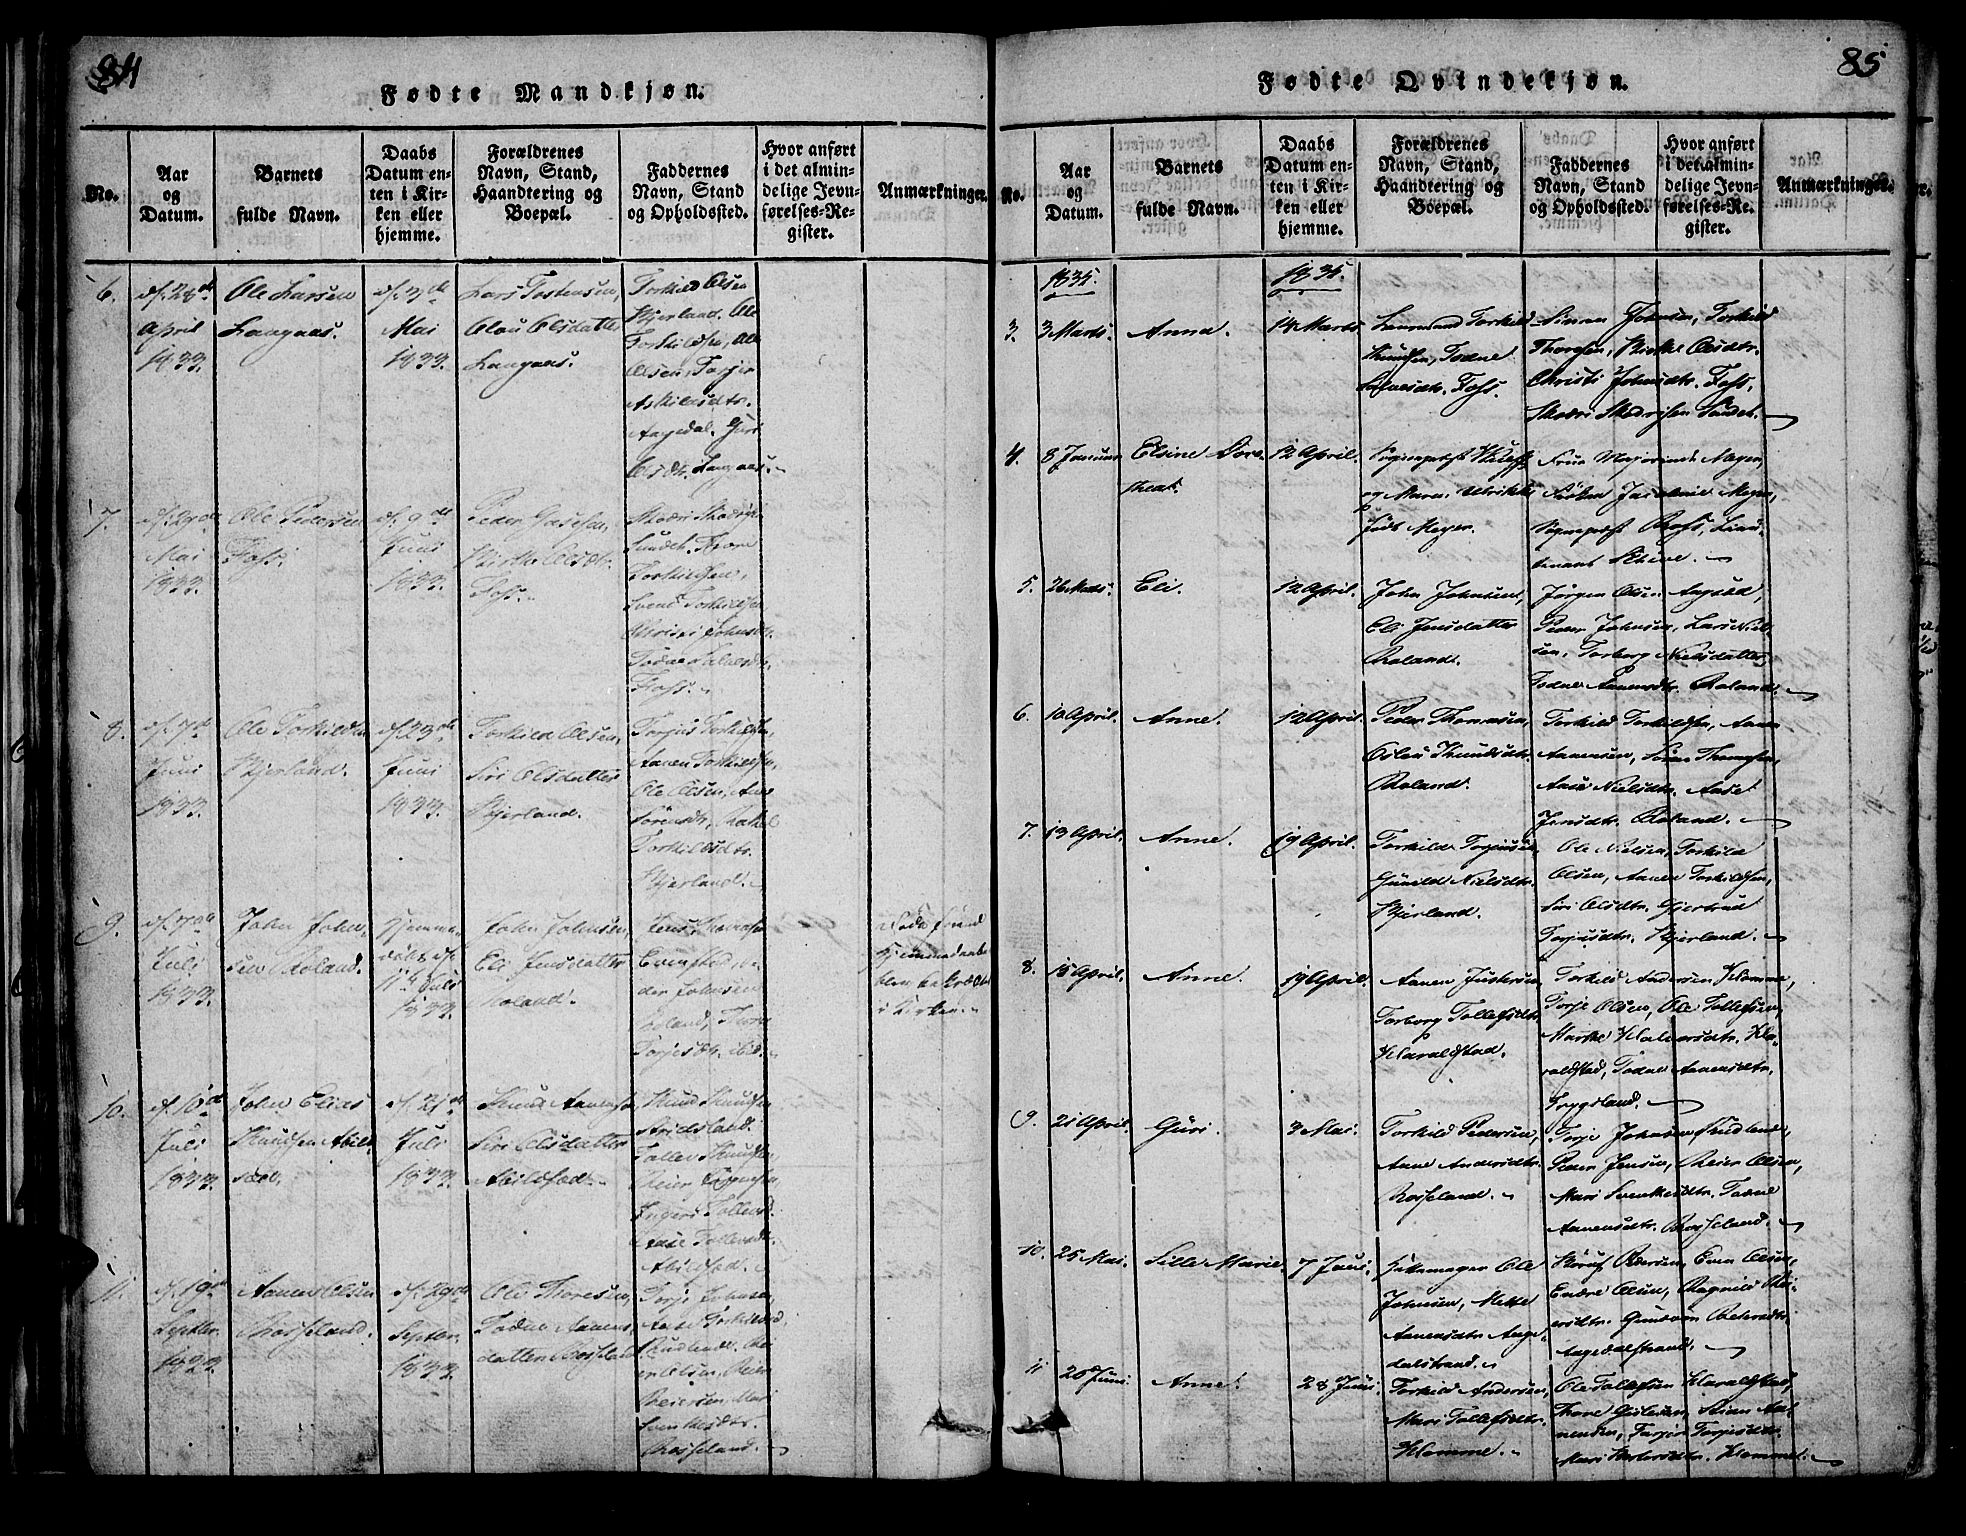 84
Fødte Mandkjøn.
No.
Aar og Datum.
Barnets fulde Navn.
Daabs Datum enten i Kirken eller hjemme.
Forældrenes Navn, Stand, Haandtering og Boepæl.
Faddernes Navn, Stand og Opholdssted.
Hvor anført i det almindelige Jevnførelses-Register.
Anmærkninger.
6.
d. 28de
April
1833.
Ole Larsen
Langaas.
d. 3de
Mai
1833.
Lars Tostensen,
Olau Olsdatter
Langaas.
Torkild Olsen
Bjerland. Ole
Torkildsen, Ole
Olsen, Torjer
Askildsdtr.
Aagedal. Guri
Olsdtr. Langaas.
7.
d. 29de
Mai
1833.
Ole Pedersen
Foss.
d. 9de
Juni
1833.
Peder
Birthe Olsdtr.
Foss.
Skodri
Sundet. Thore
Torkildsen,
Svend Torkildsen
Christi Johnsdtr.
Todne Salvesdtr.
Foss.
8.
d. 7de
Juni
1833.
Ole Torkildsen
Bjerland.
d. 23de
Juni
1833.
Torkild Olsen,
Siri Olsdatter
Bjerland.
Torjus Torkildsen,
Aanen Torkildsen,
Ole Olsen, Ane
Sørensdtr, Rakel
Torkildsdtr.
Bjerland.
9.
d. 7de
Juli
1833.
John John-
sen Roland.
Hjemme-
døbt d.
11te Juli
1833.
John Johnsen,
Eli Jensdatter
Roland.
Jens Thomassen
Evensted, Pe-
der Johnsen
Roland, Thore
Torjesdtr. ibid.
Hjemmedaaben
blev bekræftet
i Kirken.
10.
d. 10de
Juli
1833.
John Elias
Knudsen Abild-
sæd.
d. 21de
Juli
1833.
Knud Aanensen
Siri Olsdatter
Abildsæd.
Knud Knudsen
Tollev Knudsen
Ingeri Tollevsd.
Aase Tollevsdtr.
Abildsæd.
11.
d. 19de
Septbr.
1833.
Aanen Olsen
Rosseland.
d. 29de
Septbr.
1833.
Ole Thoresen,
Todne Aanens-
datter Rosseland
Torje Johnsen,
Aase Torkildsd.
Rudland. Rei-
er Olsen, Reier
Reiersen, Mari
Svenkesdtr.
Rosseland.
85
Fødte Qvindekjøn.
No.
Aar og Datum.
Barnets fulde Navn.
Daabs Datum enten i Kirken eller hjemme.
Forældrenes Navn, Stand, Haandtering og Boepæl.
Faddernes Navn, Stand og Opholdssted.
Hvor anført i det almindelige Jevnførelses-Register.
Anmærkninger.
1835.
1835.
3.
3 Marts.
Anna.
14 Marts
Lensmand Torkild
Knudsen, Todne
Salvesdtr. Foss.
Simon Johnsen, Torkild
Thoresen, Birthe Olsdtr.
Christi Johnsdtr. Foss,
Skodri Skodrisen Sundet.
4.
8 Januar
Elsine Doro-
theat.
12 April.
Sogneprest
og Maren Ulrikke
Meyer.
Frue Majorinde Meyer,
Frøken Jacobine Meyer,
Sogneprest Ross, Lieu-
tenant
5.
26 Marts.
Eli.
12 April.
John Johnsen,
Eli Jensdatter
Roland.
Jørgen Olsen Aagsæd,
Peder Johnsen, Lars Niel-
sen, Torborg Nielsdatter,
Todne Aanensdtr. Roland.
6.
10 April.
Anne.
12 April.
Peder Thomesen,
Oslau Knudsdtr.
Roland.
Torkild Torkildsen, Aanen
Aanensen, Sören Thomesen,
Aase Nielsdtr. Aaset
Jensdtr. Roland.
7.
13 April.
Anne.
19 April.
Torkild Torjussen,
Gunild Nielsdtr.
Bjerland.
Ole Nielsen, Torkild
Olsen, Aanen Torkildsen,
Siri Olsdtr. Gjertrud
Torjusdtr. Bjerland.
8.
15 April.
Anne.
19 April.
Aanen Justersen
Torborg Tollefsdtr.
Haraldstad.
Torkild Andersen Homme,
Torje Olsen, Ole Tollefsen,
Marthe Halvorsdtr. Ha-
raldstad, Todne Aanensdtr.
Trygsland.
9.
21 April.
Guri.
3 Mai.
Torkild Pedersen,
Anne Andersdtr.
Rosseland.
Torje Johnsen Rudland,
Peder Jensen, Reier Olsen,
Mari Svenkesdtr. Todne
Aanensdtr. Rosseland.
10.
25 Mai.
Sille Marie.
7 Juni.
Hattemager Ole
Johnsen, Mette
Aanensdtr. Aage-
dalstrand.
Even Olsen,
Endre Olsen, Ragnild Rei-
ersdtr. Gunvor
Aagedalstrand.
11
20 Juni.
Anne.
28 Juni.
Torkild Andersen,
Mari Tollefsdtr.
Homme.
Ole Tollefsen Haraldstad,
Thore Gislesen, Stian Aa-
nensen, Torjer Torjusdtr.
Mari Homme.